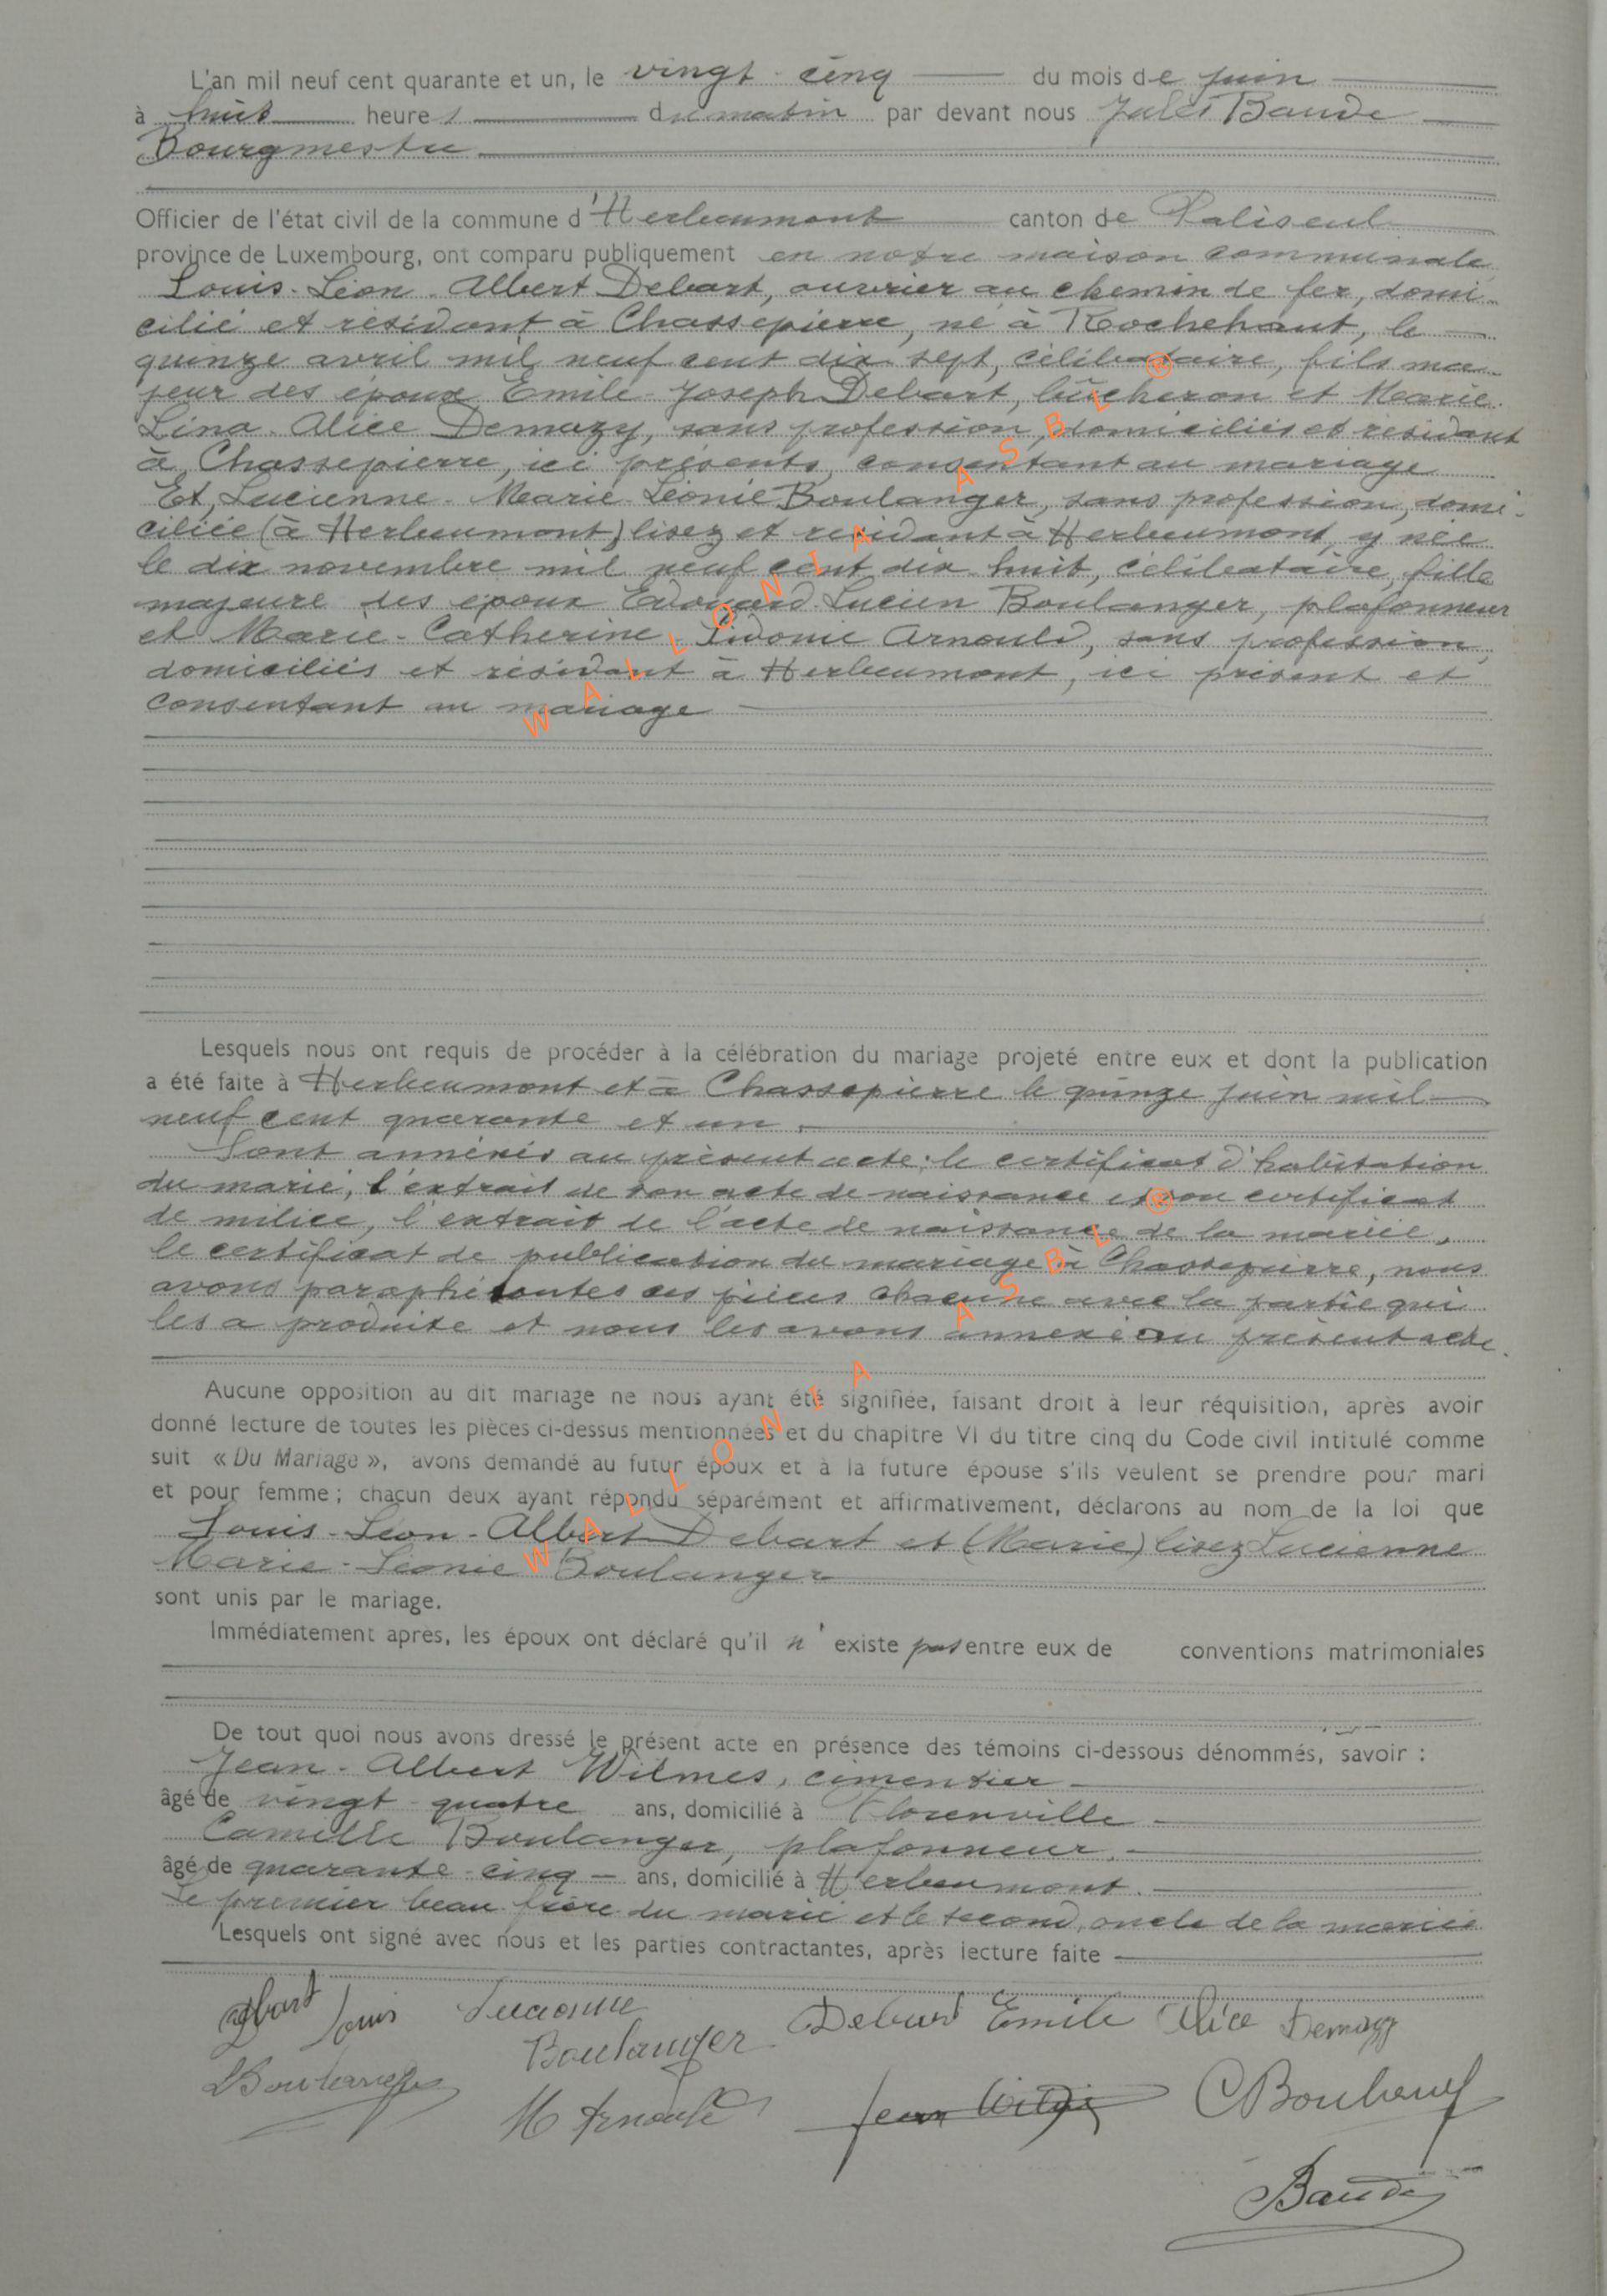 L'an mil neuf cent quarante et un, le vingt-cinq du mois de juin
à huit heures du matin par devant nous Jules Baude
Bourgmestre
Officier de l'état civil de la commune d'Herbeumont canton de Paliseul
province de Luxembourg, ont comparu publiquement en notre maison communale
Louis-Léon-Albert Debart, ouvrier au chemin de fer, domi-
cilié et résidant à Chassepierre, né à Rochehaut, le
quinze avril mil neuf cent dix-sept, célibataire, fils ma-
jeur des époux Emile-Joseph Debart, bûcheron et Marie-
Lina-Alice Demazy, sans profession, domiciliés et résidant
à Chassepierre, ici présents, consentant au mariage
Et, Lucienne-Marie-Léonie Boulanger, sans profession, domi-
ciliée (à Herbeumont) lisez et residant à Herbeumont, y née
le dix novembre mil neuf cent dix-huit, célibataire, fille
majeure des époux Edouard-Lucien Boulanger, plafonneur
et Marie-Catherine-Sidonie Arnould, sans profession,
domiciliés et résidant à Herbeumont, ici présent et
consentant au mariage
Lesquels nous ont requis de procéder à la célébration du mariage projeté entre eux et dont la publication
a été faite à Herbeumont et à Chassepierre le quinze juin mil
neuf cent quarante et un.
Sont annexés au présent acte: le certificat d'habitation
du marié, l'extrait de son acte de naissance et son certificat
de milice, l'extrait de l'acte de naissance de la mariée,
le certificat de publication du mariage à Chassepierre, nous
avons paraphé toutes ces pièces chacune avec la partie qui
les a produite et nous les avons annexé au présent acte.
Aucune opposition au dit mariage ne nous ayant été signifiée, faisant droit à leur réquisition, après avoir
donné lecture de toutes les pièces ci-dessus mentionnées et du chapitre VI du titre cinq du Code civil intitulé comme
suit « Du Mariage », avons demandé au futur époux et à la future épouse s'ils veulent se prendre pour mari
et pour femme ; chacun deux ayant répondu séparément et affirmativement, déclarons au nom de la loi que
Louis-Léon-Albert Debart et (Marie) lisez Lucienne
Marie-Léonie Boulanger
sont unis par le mariage.
Immédiatement après, les époux ont déclaré qu'il n'existe pas entre eux de conventions matrimoniales
De tout quoi nous avons dressé le présent acte en présence des témoins ci-dessous dénommés, savoir :
Jean-Albert Wilmes, cimentier
âgé de vingt-quatre ans, domicilié à Florenville
Camille Boulanger, plafonneur,
âgé de quarante-cinq ans, domicilié à Herbeumont.
Le premier beau-frère du marié et le second, oncle de la mariée
Lesquels ont signé avec nous et les parties contractantes, après lecture faite
Debart Louis Lucienne Boulanger Debart Emile Alice Demazy
Boulanger M Arnould Jean C Boulanger
Baude
WALLONIA ASBL ®
WALLONIA ASBL ®